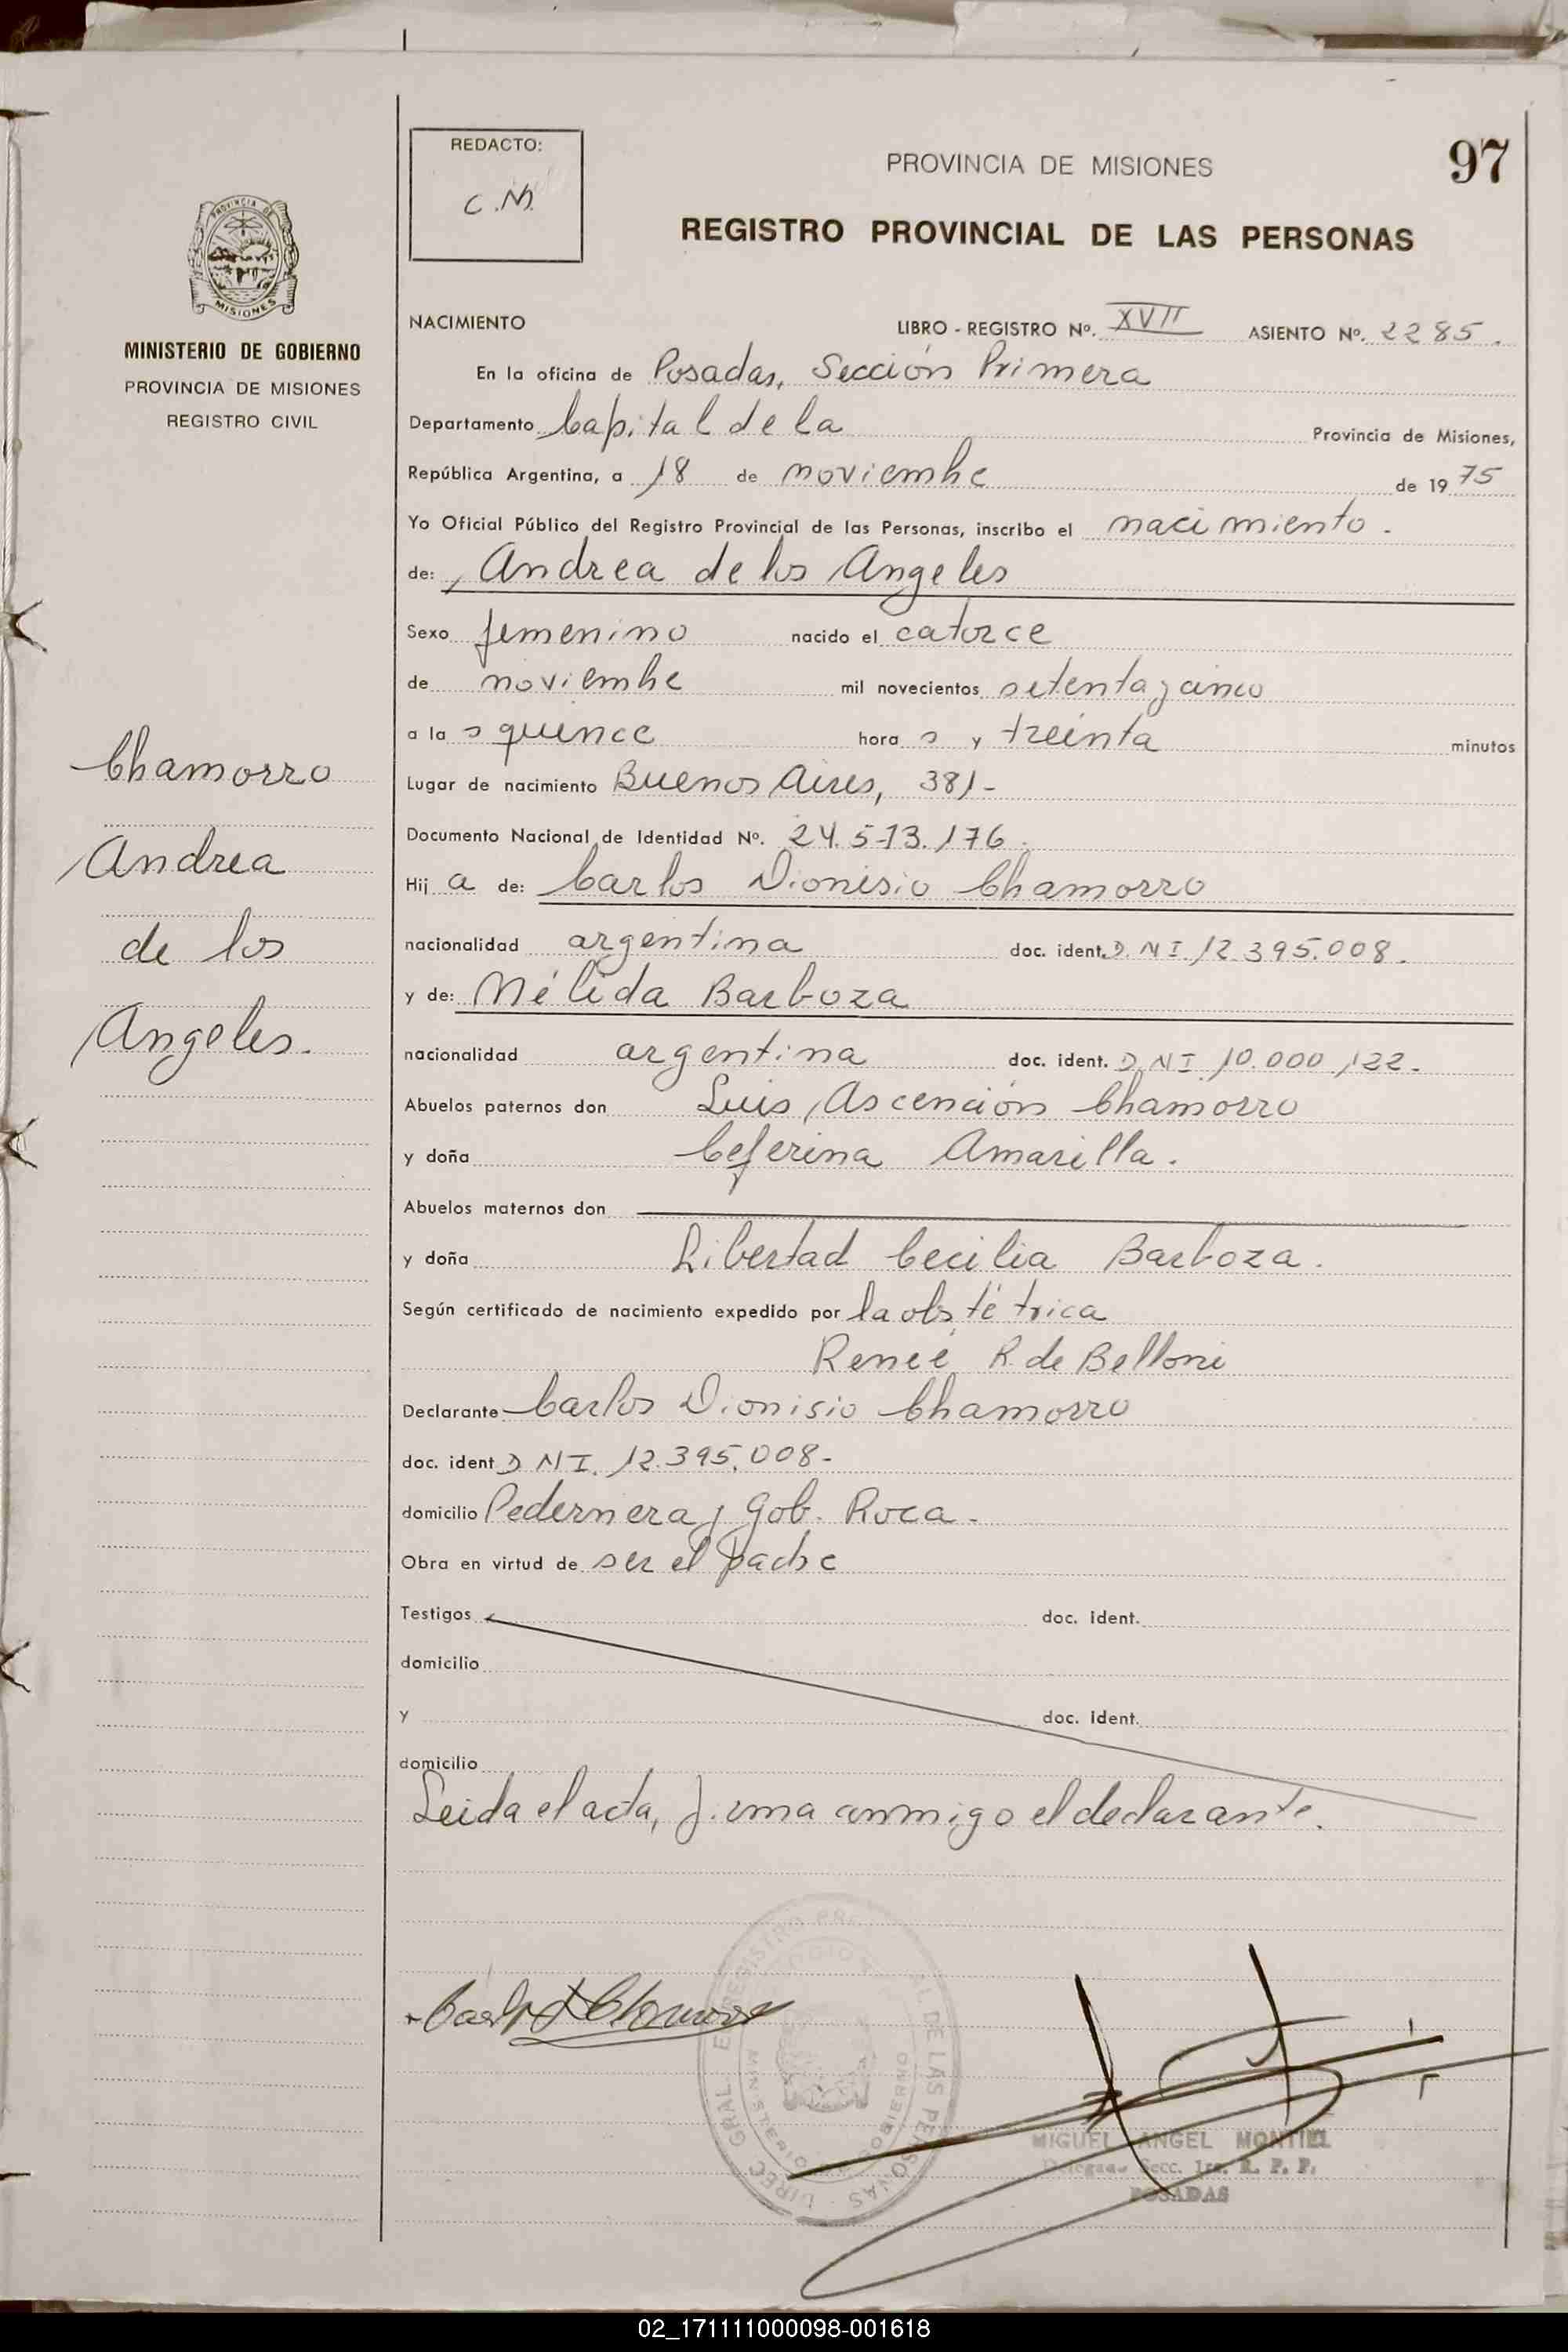 97
REDACTO:
C.M.
PROVINCIA DE MISIONES
REGISTRO PROVINCIAL DE LAS PERSONAS
PROVINCIA DE
MISIONES
MINISTERIO DE GOBIERNO
PROVINCIA DE MISIONES
REGISTRO CIVIL
Chamorro
Andrea
de los
Angeles.
NACIMIENTO LIBRO - REGISTRO Nº. XVII ASIENTO Nº. 2285.
En la oficina de Posadas, Sección Primera
Departamento Capital de la Provincia de Misiones,
República Argentina, a 18 de noviembre de 1975
Yo Oficial Público del Registro Provincial de las Personas, inscribo el nacimiento.
de: Andrea de los Angeles
Sexo femenino nacido el catorce
de noviembre mil novecientos setenta y cinco
a la s quince hora s y treinta minutos
Lugar de nacimiento Buenos Aires, 381-
Documento Nacional de Identidad Nº. 24.513.176.
Hij a de: Carlos Dionisio Chamorro
nacionalidad argentina doc. ident. D.N.I. 12.395.008.
y de: Nélida Barboza
nacionalidad argentina doc. ident. D.N.I. 10.000.122.
Abuelos paternos don Luis Ascención Chamorro
y doña Ceferina Amarilla.
Abuelos maternos don
y doña Libertad Cecilia Barboza.
Según certificado de nacimiento expedido por la obstétrica
Reneé R. de Belloni
Declarante Carlos Dionisio Chamorro
doc. ident D.N.I. 12.395.008-
domicilio Pedernera y Gob. Roca.
Obra en virtud de ser el padre
Testigos doc. ident.
domicilio
y doc. ident.
domicilio
Leida el acta, firma conmigo el declarante.
MIGUEL ANGEL MONTIEL
Delegado Secc. 1ra. R. P. P.
POSADAS
02_171111000098-001618